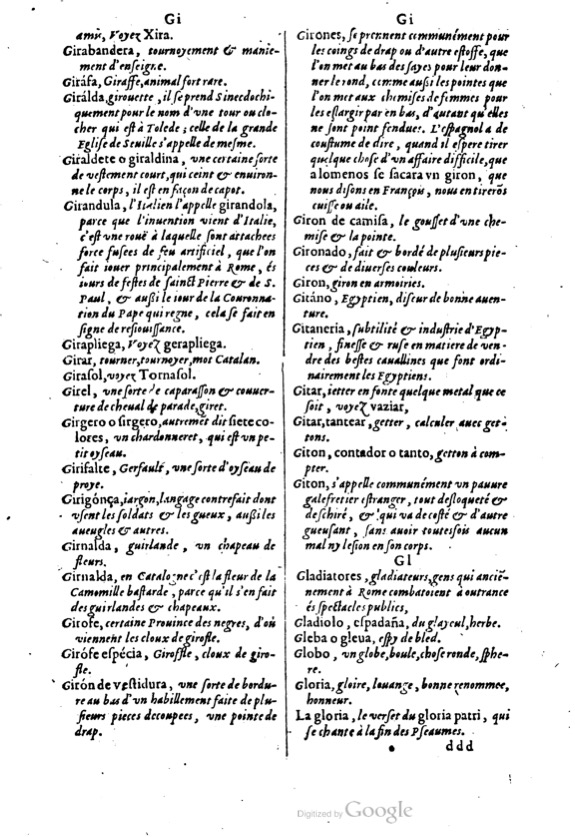 Gi
amis, Voyez Xira.
Girabandera, tournoyement & manie-
ment d'enseigne.
Giráfa, Giraffe, animal fort rare.
Girálda, girouette, il se prend Sinecdochi-
quement pour le nom d'vne tour ou clo-
cher qui est à Tolede; celle de la grande
Eglise de Seuille s'appelle de mesme.
Giraldete o giraldina, vne certaine sorte
de vestement court, qui ceint & environ-
ne le corps, il est en façon de capot.
Girandula, l'Italien l'appelle girandola,
parce que l'inuention vient d'Italie,
c'est vne rouë à laquelle sont attachees
force fusees de feu artificiel, que l'on
fait iouer principalement à Rome, és
iours de festes de sainct Pierre & de S.
Paul, & außi le iour de la Couronna-
tion du Pape qui regne, cela se fait en
signe de resiouissance.
Girapliega, Voyez gerapliega.
Girar, tourner, tournoyer, mot Catalan.
Girasol, voyez Tornasol.
Girel, vne sorte de caparasson & couuer-
ture de cheual de parade, giret.
Girgero o sirgero, autremẽt dit siete co-
lores, vn chardonneret, qui est vn pe-
tit oyseau.
Girifalte, Gerfault, vne sorte d'oyseau de
proye.
Girigónça, iargon, langage contrefait dont
vsent les soldats & les gueux, außi les
aueugles & autres.
Girnalda, guirlande, vn chapeau de
fleurs.
Girnalda, en Catalogne c'est la fleur de la
Camomille bastarde, parce qu'il s'en fait
des guirlandes & chapeaux.
Girofe, certaine Prouince des negres, d'où
viennent les cloux de girofle.
Girófe espécia, Giroffle, cloux de giro-
fle.
Girón de vestidura, vne sorte de bordu-
re au bas d'vn habillement faite de plu-
sieurs pieces decoupees, vne pointe de
drap.
Gi
Girones, se prennent communément pour
les coings de drap ou d'autre estoffe, que
l'on met au bas des sayes pour leur don-
ner le rond, comme außi les pointes que
l'on met aux chemises de femmes pour
les eslargir par en bas, d'autant qu'elles
ne sont point fendues. L'espagnol a de
coustume de dire, quand il espere tirer
quelque chose d'vn affaire difficile, que
a lomenos se sacara vn giron, que
nous disons en François, nous en tirerõs
cuisse ou aile.
Giron de camisa, le gousset d'vne che-
mise & la pointe.
Gironado, fait & bordé de plusieurs pie-
ces & de diuerses couleurs.
Giron, giron en armoiries.
Gitáno, Egyptien, diseur de bonne auen-
ture.
Gitaneria, subtilité & industrie d'Egyp-
tien, finesse & ruse en matiere de ven-
dre des bestes cauallines que font ordi-
nairement les Egyptiens.
Gitar, ietter en fonte quelque metal que ce
soit, voyez vaziar,
Gitar, tantear, getter, calculer auec get-
tons.
Giton, contador o tanto, getton à com-
pter.
Giton, s'appelle communément un pauure
galefretier estranger, tout desloqueté &
deschiré, & qui va de costé & d'autre
gueusant, sans auoir toutesfois aucun
mal ny lesion en son corps.
Gl
Gladiatores, gladiateurs, gens qui anciẽ-
nement à Rome combatoient à outrance
és spectacles publics,
Gladiolo, espadaña, du glaycul, herbe.
Gleba o gleua, espy de bled.
Globo, vn globe, boule, chose ronde, sphe-
re.
Gloria, gloire, louange, bonne renommee,
honneur.
La gloria, le verset du gloria patri, qui
se chante à la fin des Pseaumes.
ddd
Digitized by Google